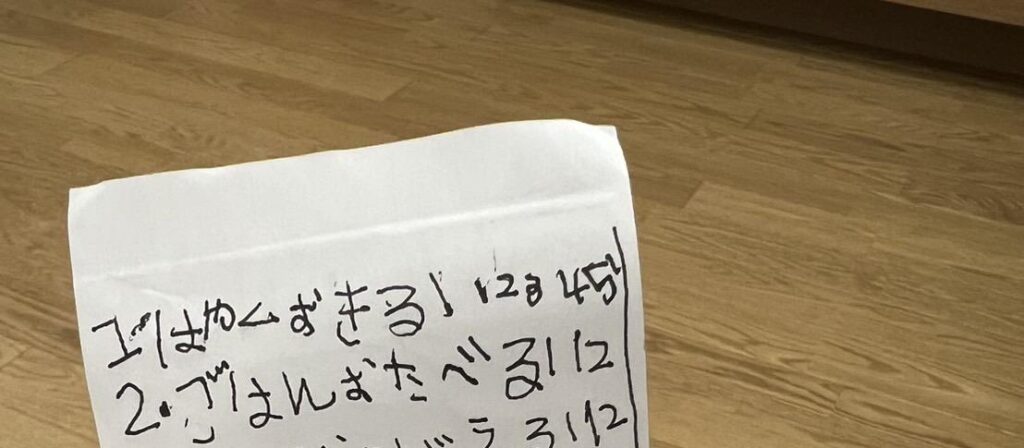 1.はやくおきる! 12345
2.ごはんおたべる! 12